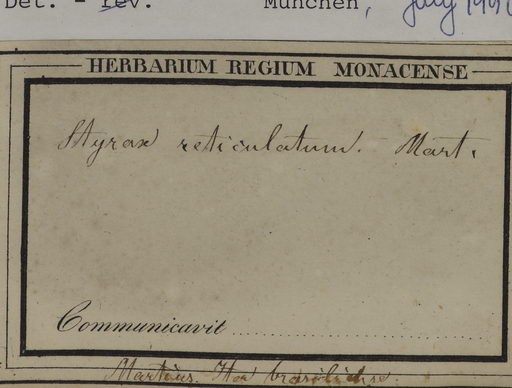 Det. - rev. München, July 199
HERBARIUM REGIUM MONACENSE
Styrax reticulatum. Mart.
Communicavit
Martius. Iter brasiliense.